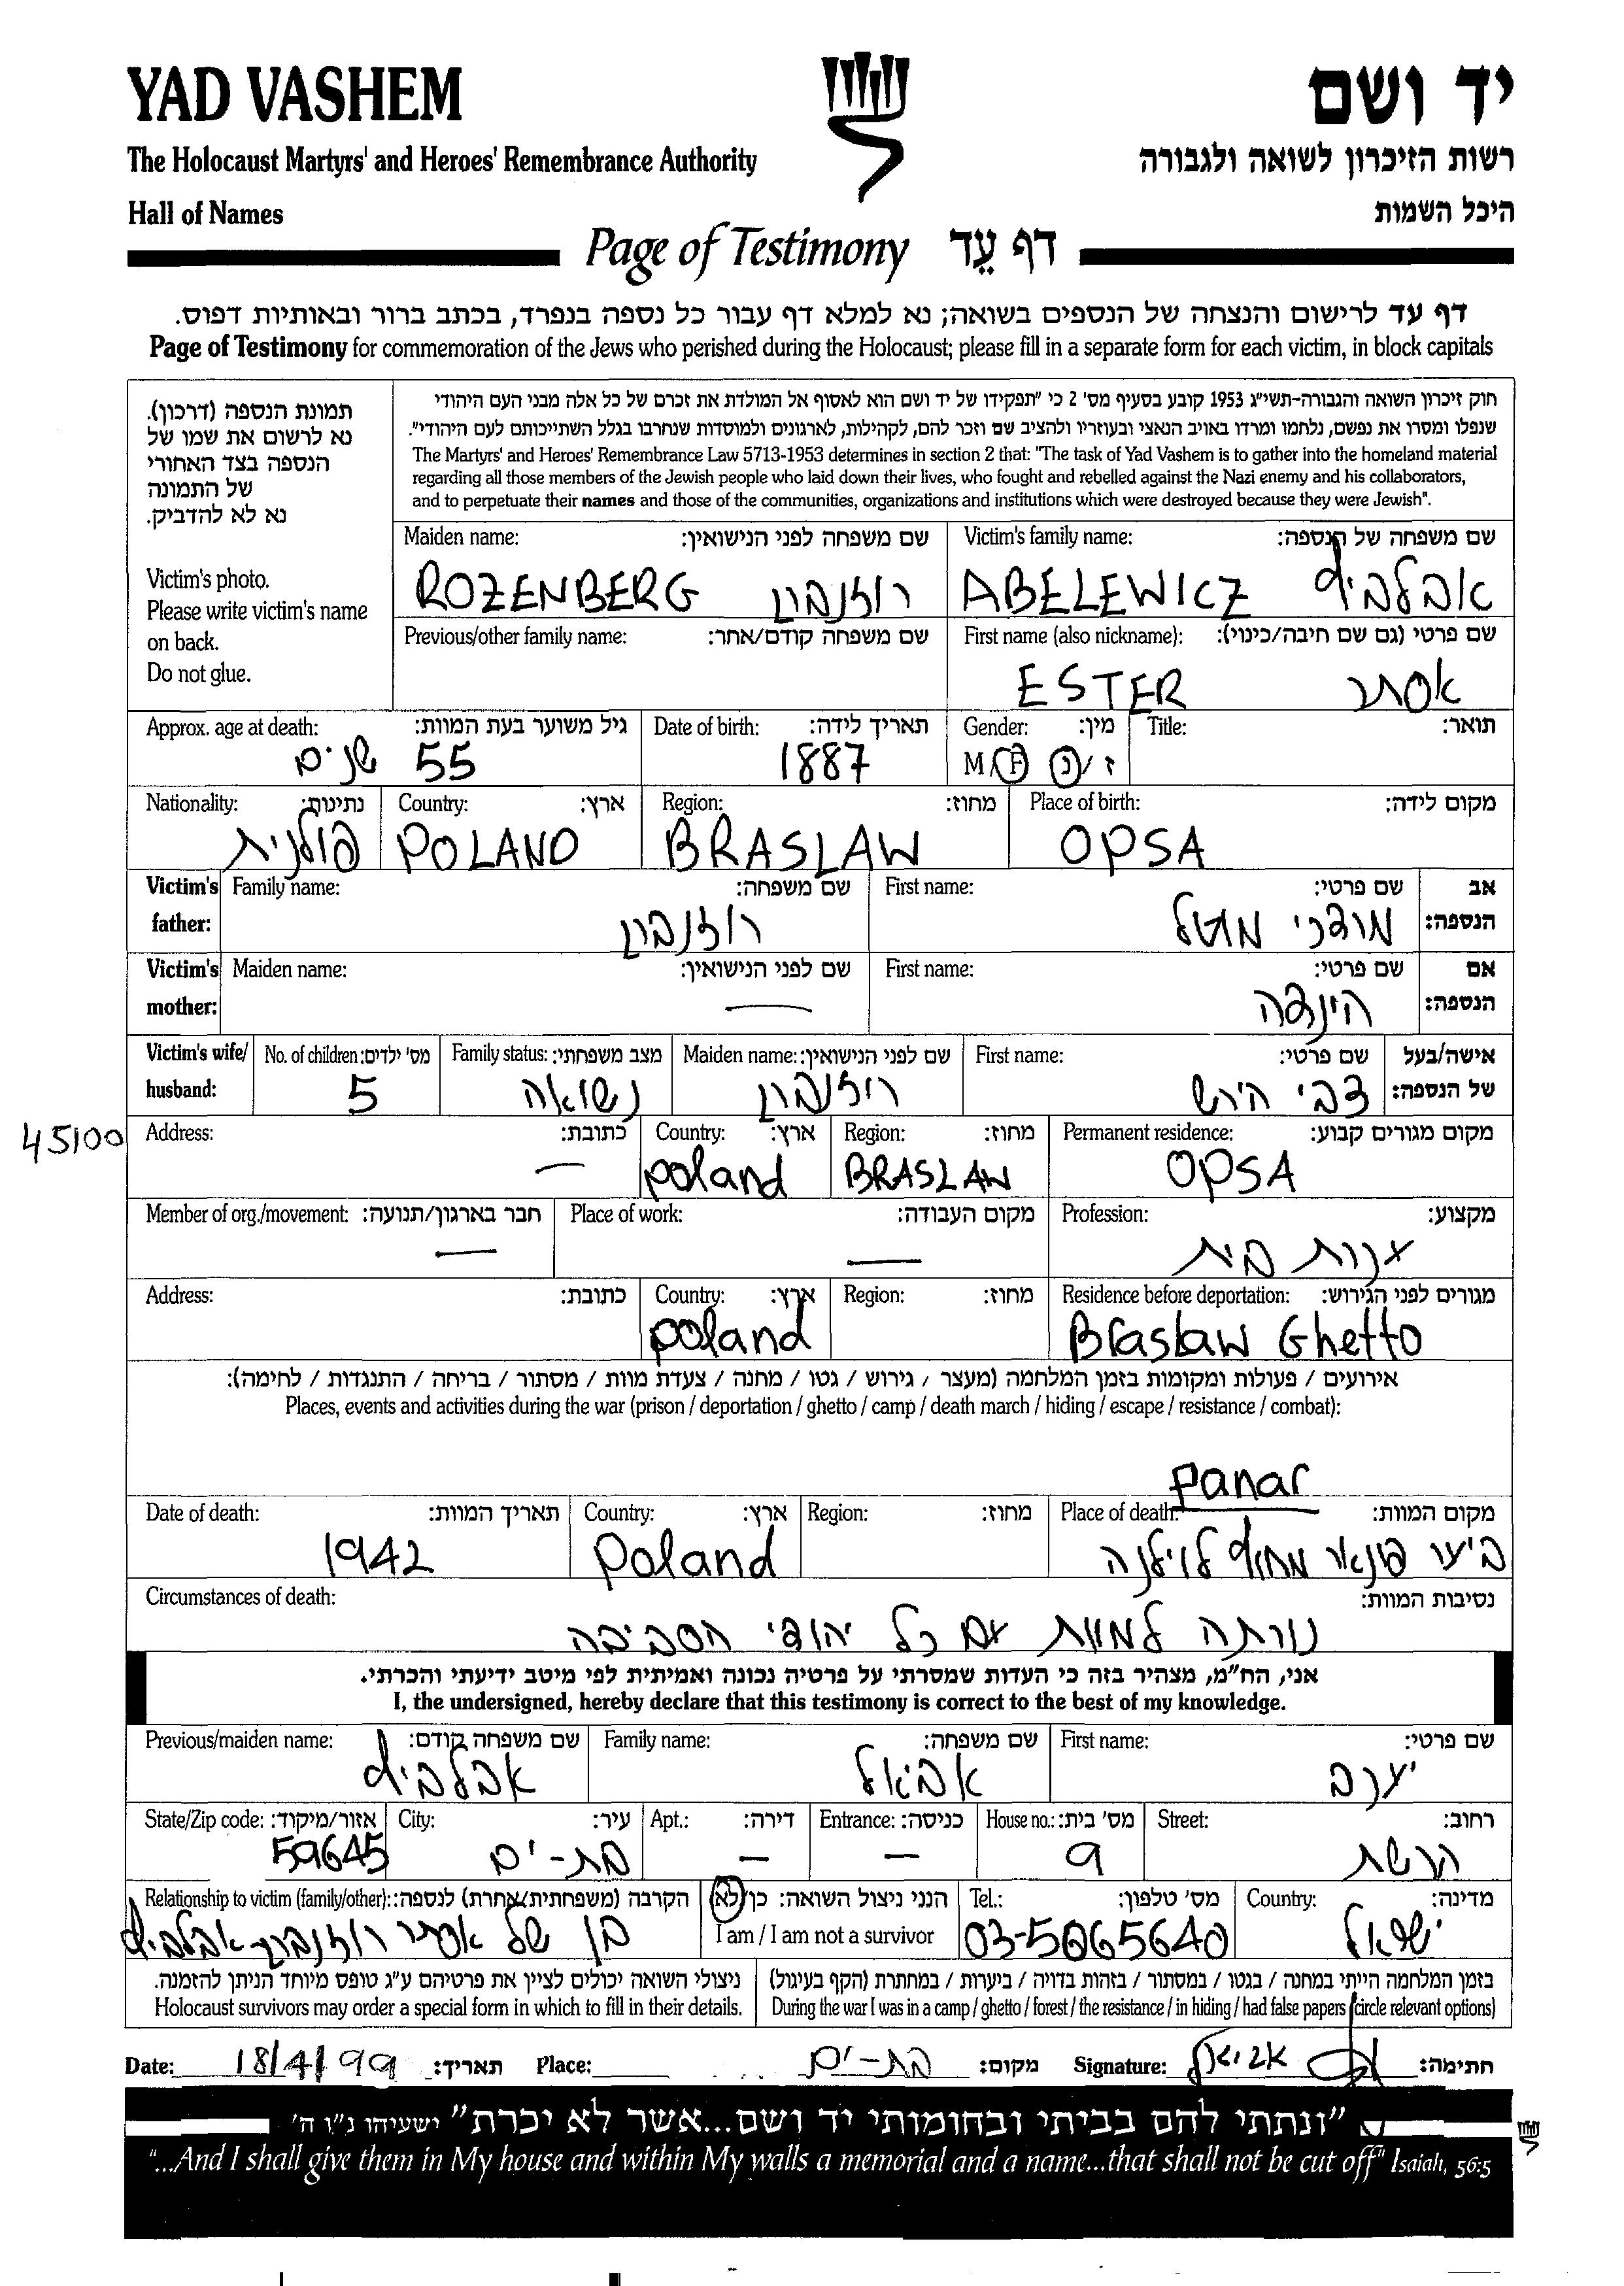 YAD VASHEM
יד ושם
The Holocaust Martyrs' and Heroes' Remembrance Authority
רשות הזיכרון לשואה ולגבורה
Hall of Names
היכל השמות
Page of Testimony דף עֵד
דף עד לרישום והנצחה של הנספים בשואה; נא למלא דף עבור כל נספה בנפרד, בכתב ברור ובאותיות דפוס.
Page of Testimony for commemoration of the Jews who perished during the Holocaust; please fill in a separate form for each victim, in block capitals
תמונת הנספה (דרכון).
נא לרשום את שמו של
הנספה בצד האחורי
של התמונה
נא לא להדביק.
Victim's photo.
Please write victim's name
on back.
Do not glue.
חוק זיכרון השואה והגבורה-תשי"ג 1953 קובע בסעיף מס' 2 כי "תפקידו של יד ושם הוא לאסוף אל המולדת את זכרם של כל אלה מבני העם היהודי
שנפלו ומסרו את נפשם, נלחמו ומרדו באויב הנאצי ובעוזריו ולהציב שם וזכר להם, לקהילות, לארגונים ולמוסדות שנחרבו בגלל השתייכותם לעם היהודי".
The Martyrs' and Heroes' Remembrance Law 5713-1953 determines in section 2 that: "The task of Yad Vashem is to gather into the homeland material
regarding all those members of the Jewish people who laid down their lives, who fought and rebelled against the Nazi enemy and his collaborators,
and to perpetuate their names and those of the communities, organizations and institutions which were destroyed because they were Jewish".
Maiden name: שם משפחה לפני הנישואין:
ROZENBERG רוזנברג
Victim's family name: שם משפחה של הנספה:
ABELEWICZ אבלביץ
Previous/other family name: שם משפחה קודם/אחר:
First name (also nickname): שם פרטי (גם שם חיבה/כינוי):
ESTER אסתר
Approx. age at death: גיל משוער בעת המוות:
55 שנים
Date of birth: תאריך לידה:
1887
Gender: מין:
M/F ז/נ
Title: תואר:
Nationality: נתינות:
פולנית
Country: ארץ:
POLAND
Region: מחוז:
BRASLAW
Place of birth: מקום לידה:
OPSA
Victim's father: Family name: שם משפחה:
רוזנברג
First name: שם פרטי: אב הנספה:
מרדכי מוטל
Victim's mother: Maiden name: שם לפני הנישואין:
—
First name: שם פרטי: אם הנספה:
הינדה
Victim's wife/ husband: No. of children: מס' ילדים:
5
Family status: מצב משפחתי:
נשואה
Maiden name: שם לפני הנישואין:
רוזנברג
First name: שם פרטי: אישה/בעל של הנספה:
צבי הירש
45100
Address: כתובת:
—
Country: ארץ:
poland
Region: מחוז:
BRASLAW
Permanent residence: מקום מגורים קבוע:
OPSA
Member of org./movement: חבר בארגון/תנועה:
—
Place of work: מקום העבודה:
—
Profession: מקצוע:
עקרת בית
Address: כתובת:
Country: ארץ:
poland
Region: מחוז:
Residence before deportation: מגורים לפני הגירוש:
Braslaw Ghetto
אירועים / פעולות ומקומות בזמן המלחמה (מעצר / גירוש / גטו / מחנה / צעדת מוות / מסתור / בריחה / התנגדות / לחימה):
Places, events and activities during the war (prison / deportation / ghetto / camp / death march / hiding / escape / resistance / combat):
Panar
Date of death: תאריך המוות:
1942
Country: ארץ:
Poland
Region: מחוז:
Place of death: מקום המוות:
ביער פונאר מחוץ לוילנה
Circumstances of death: נסיבות המוות:
נורתה למוות עם כל יהודי הסביבה
אני, הח"מ, מצהיר בזה כי העדות שמסרתי על פרטיה נכונה ואמיתית לפי מיטב ידיעתי והכרתי.
I, the undersigned, hereby declare that this testimony is correct to the best of my knowledge.
Previous/maiden name: שם משפחה קודם:
אבלביץ
Family name: שם משפחה:
אביאל
First name: שם פרטי:
יעקב
State/Zip code: אזור/מיקוד:
59645
City: עיר:
בת-ים
Apt.: דירה:
—
Entrance: כניסה:
—
House no.: מס' בית:
9
Street: רחוב:
הקשת
Relationship to victim (family/other): הקרבה (משפחתית/אחרת) לנספה:
בן של אסתר רוזנברג-אבלביץ
הנני ניצול השואה: כן/לא
I am / I am not a survivor
Tel.: מס' טלפון:
03-5065640
Country: מדינה:
ישראל
ניצולי השואה יכולים לציין את פרטיהם ע"ג טופס מיוחד הניתן להזמנה.
Holocaust survivors may order a special form in which to fill in their details.
בזמן המלחמה הייתי במחנה / בגטו / במסתור / בזהות בדויה / ביערות / במחתרת (הקף בעיגול)
During the war I was in a camp / ghetto / forest / the resistance / in hiding / had false papers (circle relevant options)
Date: 18/4/99 תאריך: Place: בת-ים מקום: Signature: אביאל חתימה:
"ונתתי להם בביתי ובחומותי יד ושם...אשר לא יכרת" ישעיהו נ"ו ה'
"...And I shall give them in My house and within My walls a memorial and a name...that shall not be cut off" Isaiah, 56:5